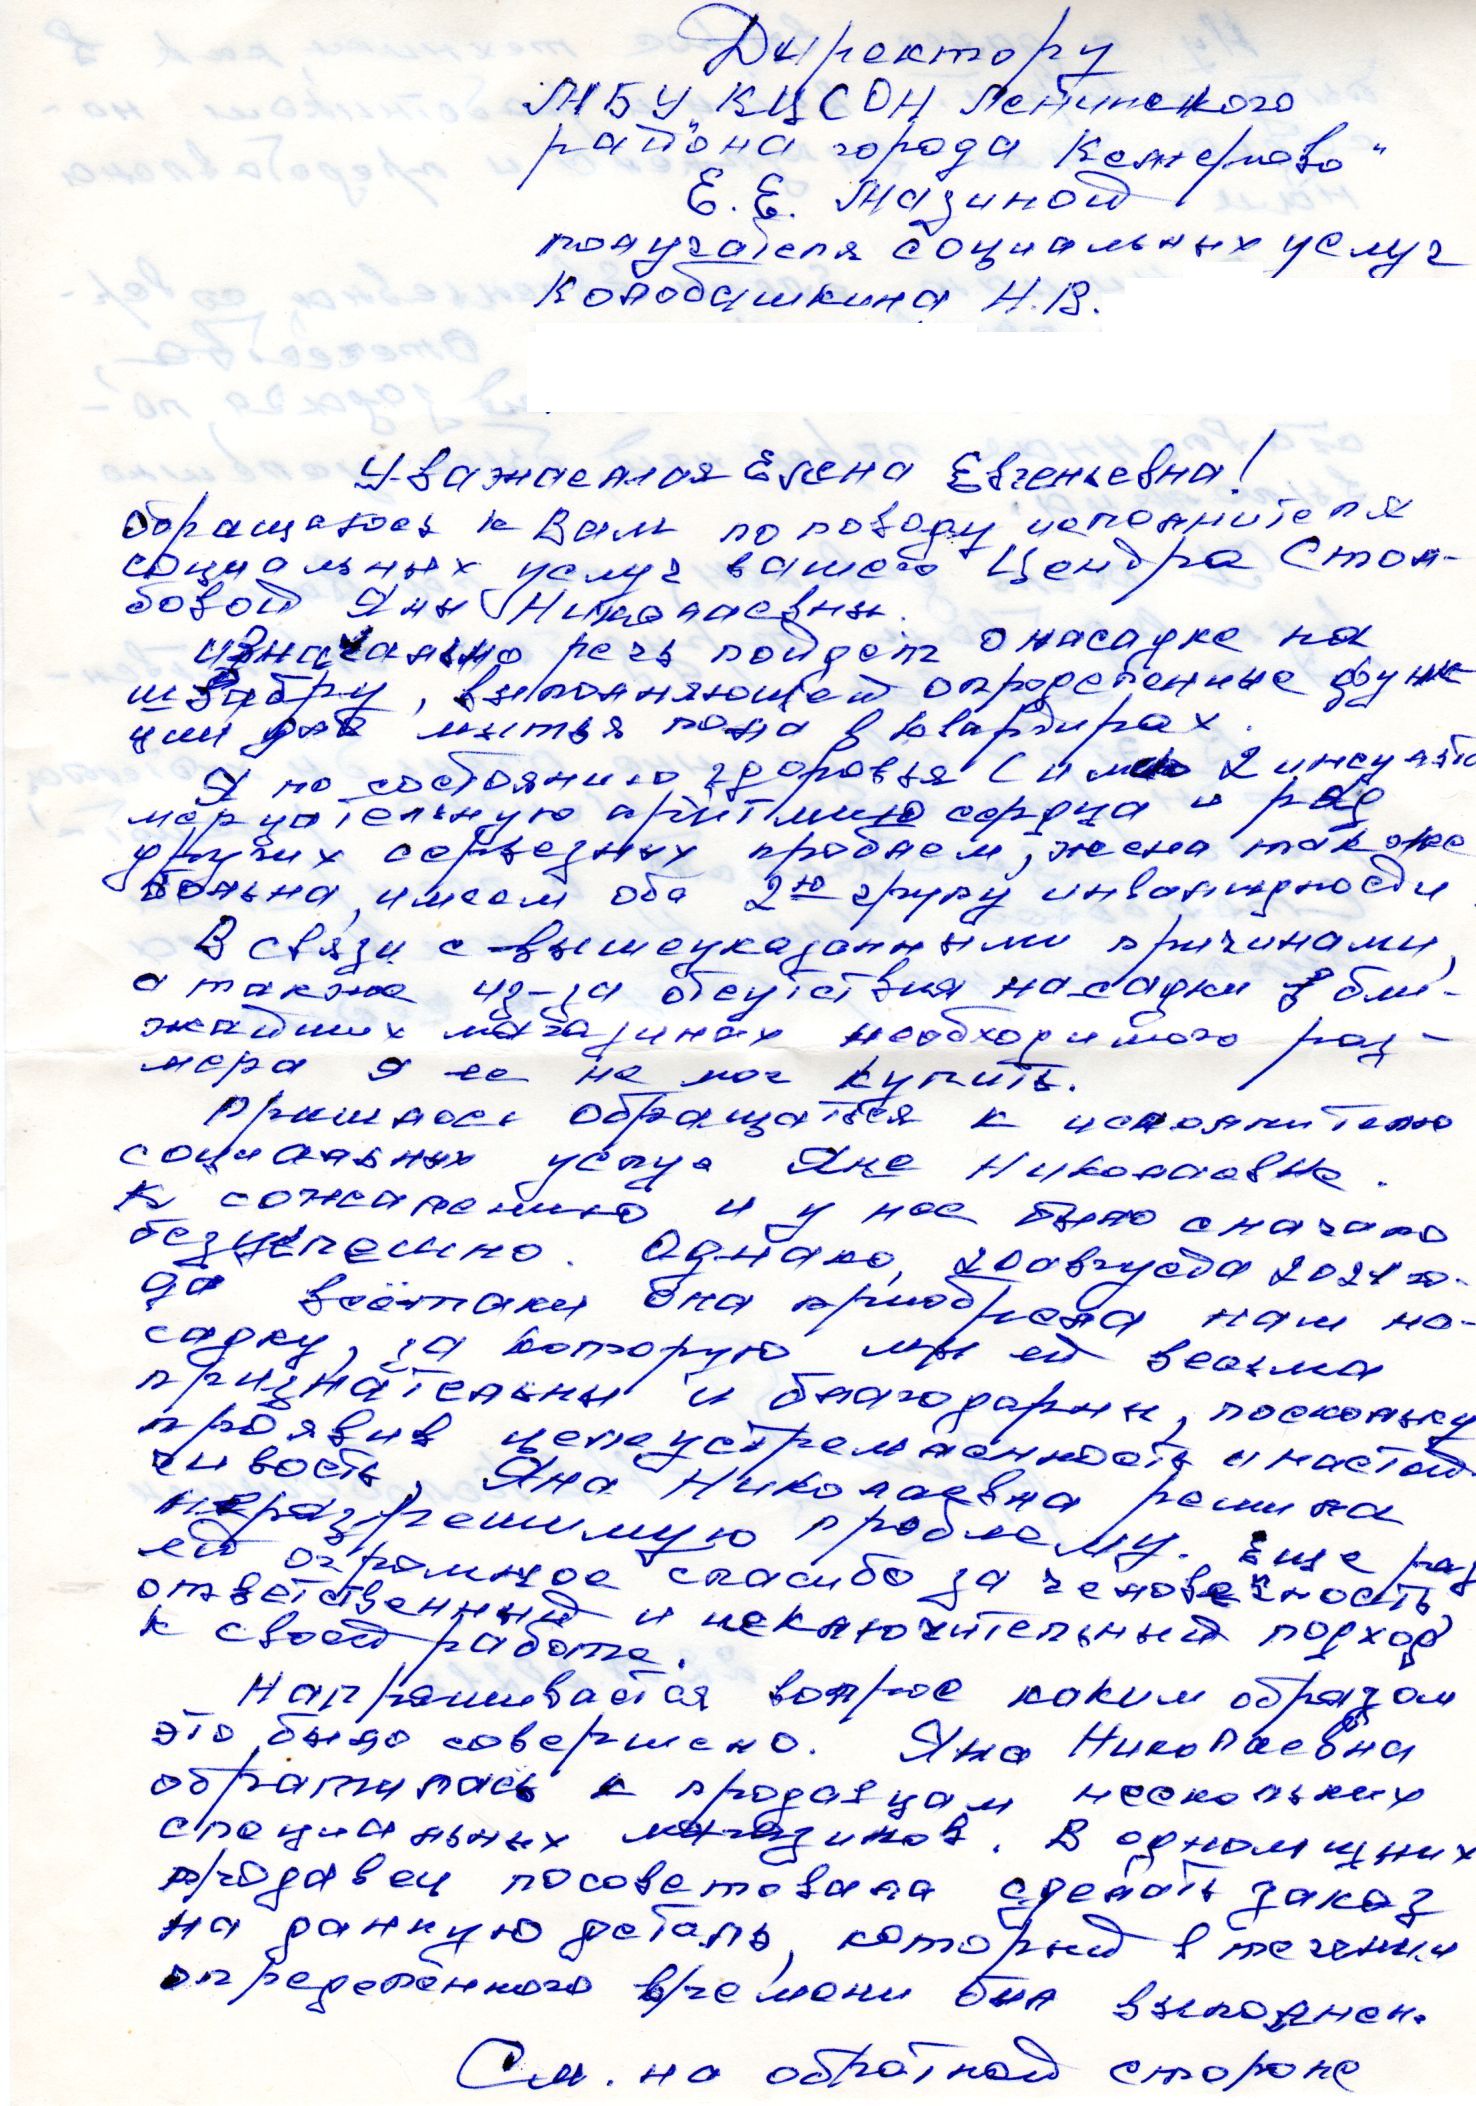 Директору
МБУ „КЦСОН Ленинского
района города Кемерово"
Е.Е. Мазиной
получателя социальных услуг
Колобашкина Н.В.
Уважаемая Елена Евгеньевна!
Обращаюсь к Вам по поводу исполнителя
социальных услуг вашего Центра Стол-
бовой Яны Николаевны.
Изначально речь пойдёт о насадке на
швабру, выполняющей определенные функ
ции для мытья пола в квартирах.
Я по состоянию здоровья (имею 2 инсульта
мерцательную аритмию сердца и ряд
других серьезных проблем, жена также
больна, имеем оба 2ю групу инвалидности
В связи с вышеуказанными причинами,
а также из-за отсутствия насадки в бли-
жайших магазинах необходимого раз-
мера я ее не мог купить.
Пришлось обращаться к исполнителю
социальных услуг Яне Николаевне.
К сожалению и у нее было сначала
безуспешно. Однако, 20 августа 2021 го-
да всётаки она приобрела нам на-
садку, за которую мы ей весьма
признательны и благодарны, поскольку
проявив целеустремленность и настой
чивость, Яна Николаевна решила
неразрешимую проблему. Еще раз
ей огромное спасибо за человечность,
ответственный и исключительный подход
к своей работе.
Напрашивается вопрос каким образом
это было совершено. Яна Николаевна
обратилась к продавцам нескольких
специальных магазинов. В одном из них
продавец посоветовала сделать заказ
на данную деталь, который в течении
определённого времени был выполнен.
См. на обратной стороне